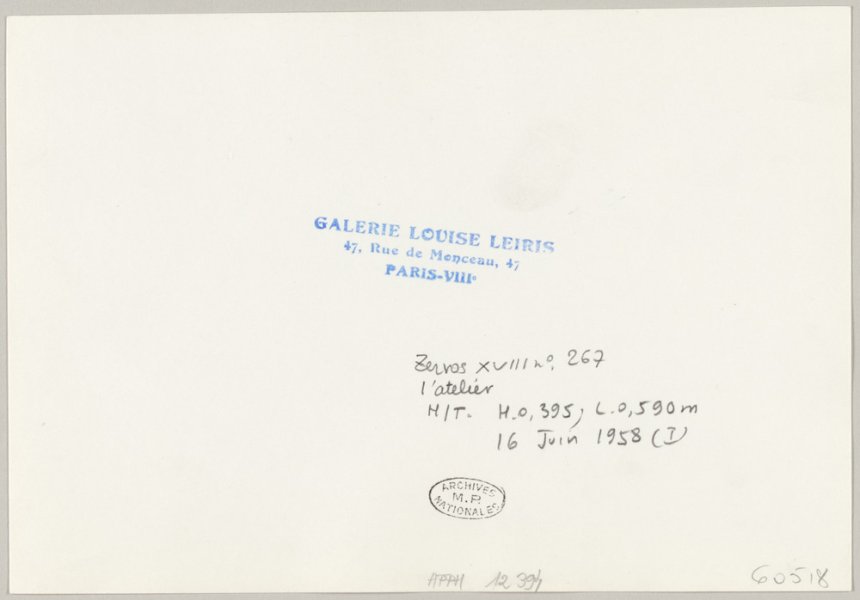 GALERIE LOUISE LEIRIS
47, Rue de Monceau, 47
PARIS-VIIIe
Zervos XVIII n°. 267
l'atelier
H/T. H.0,395; L.0,590m
16 Juin 1958 (I)
ARCHIVES
M.P.
NATIONALES
APPH 12 394
60518